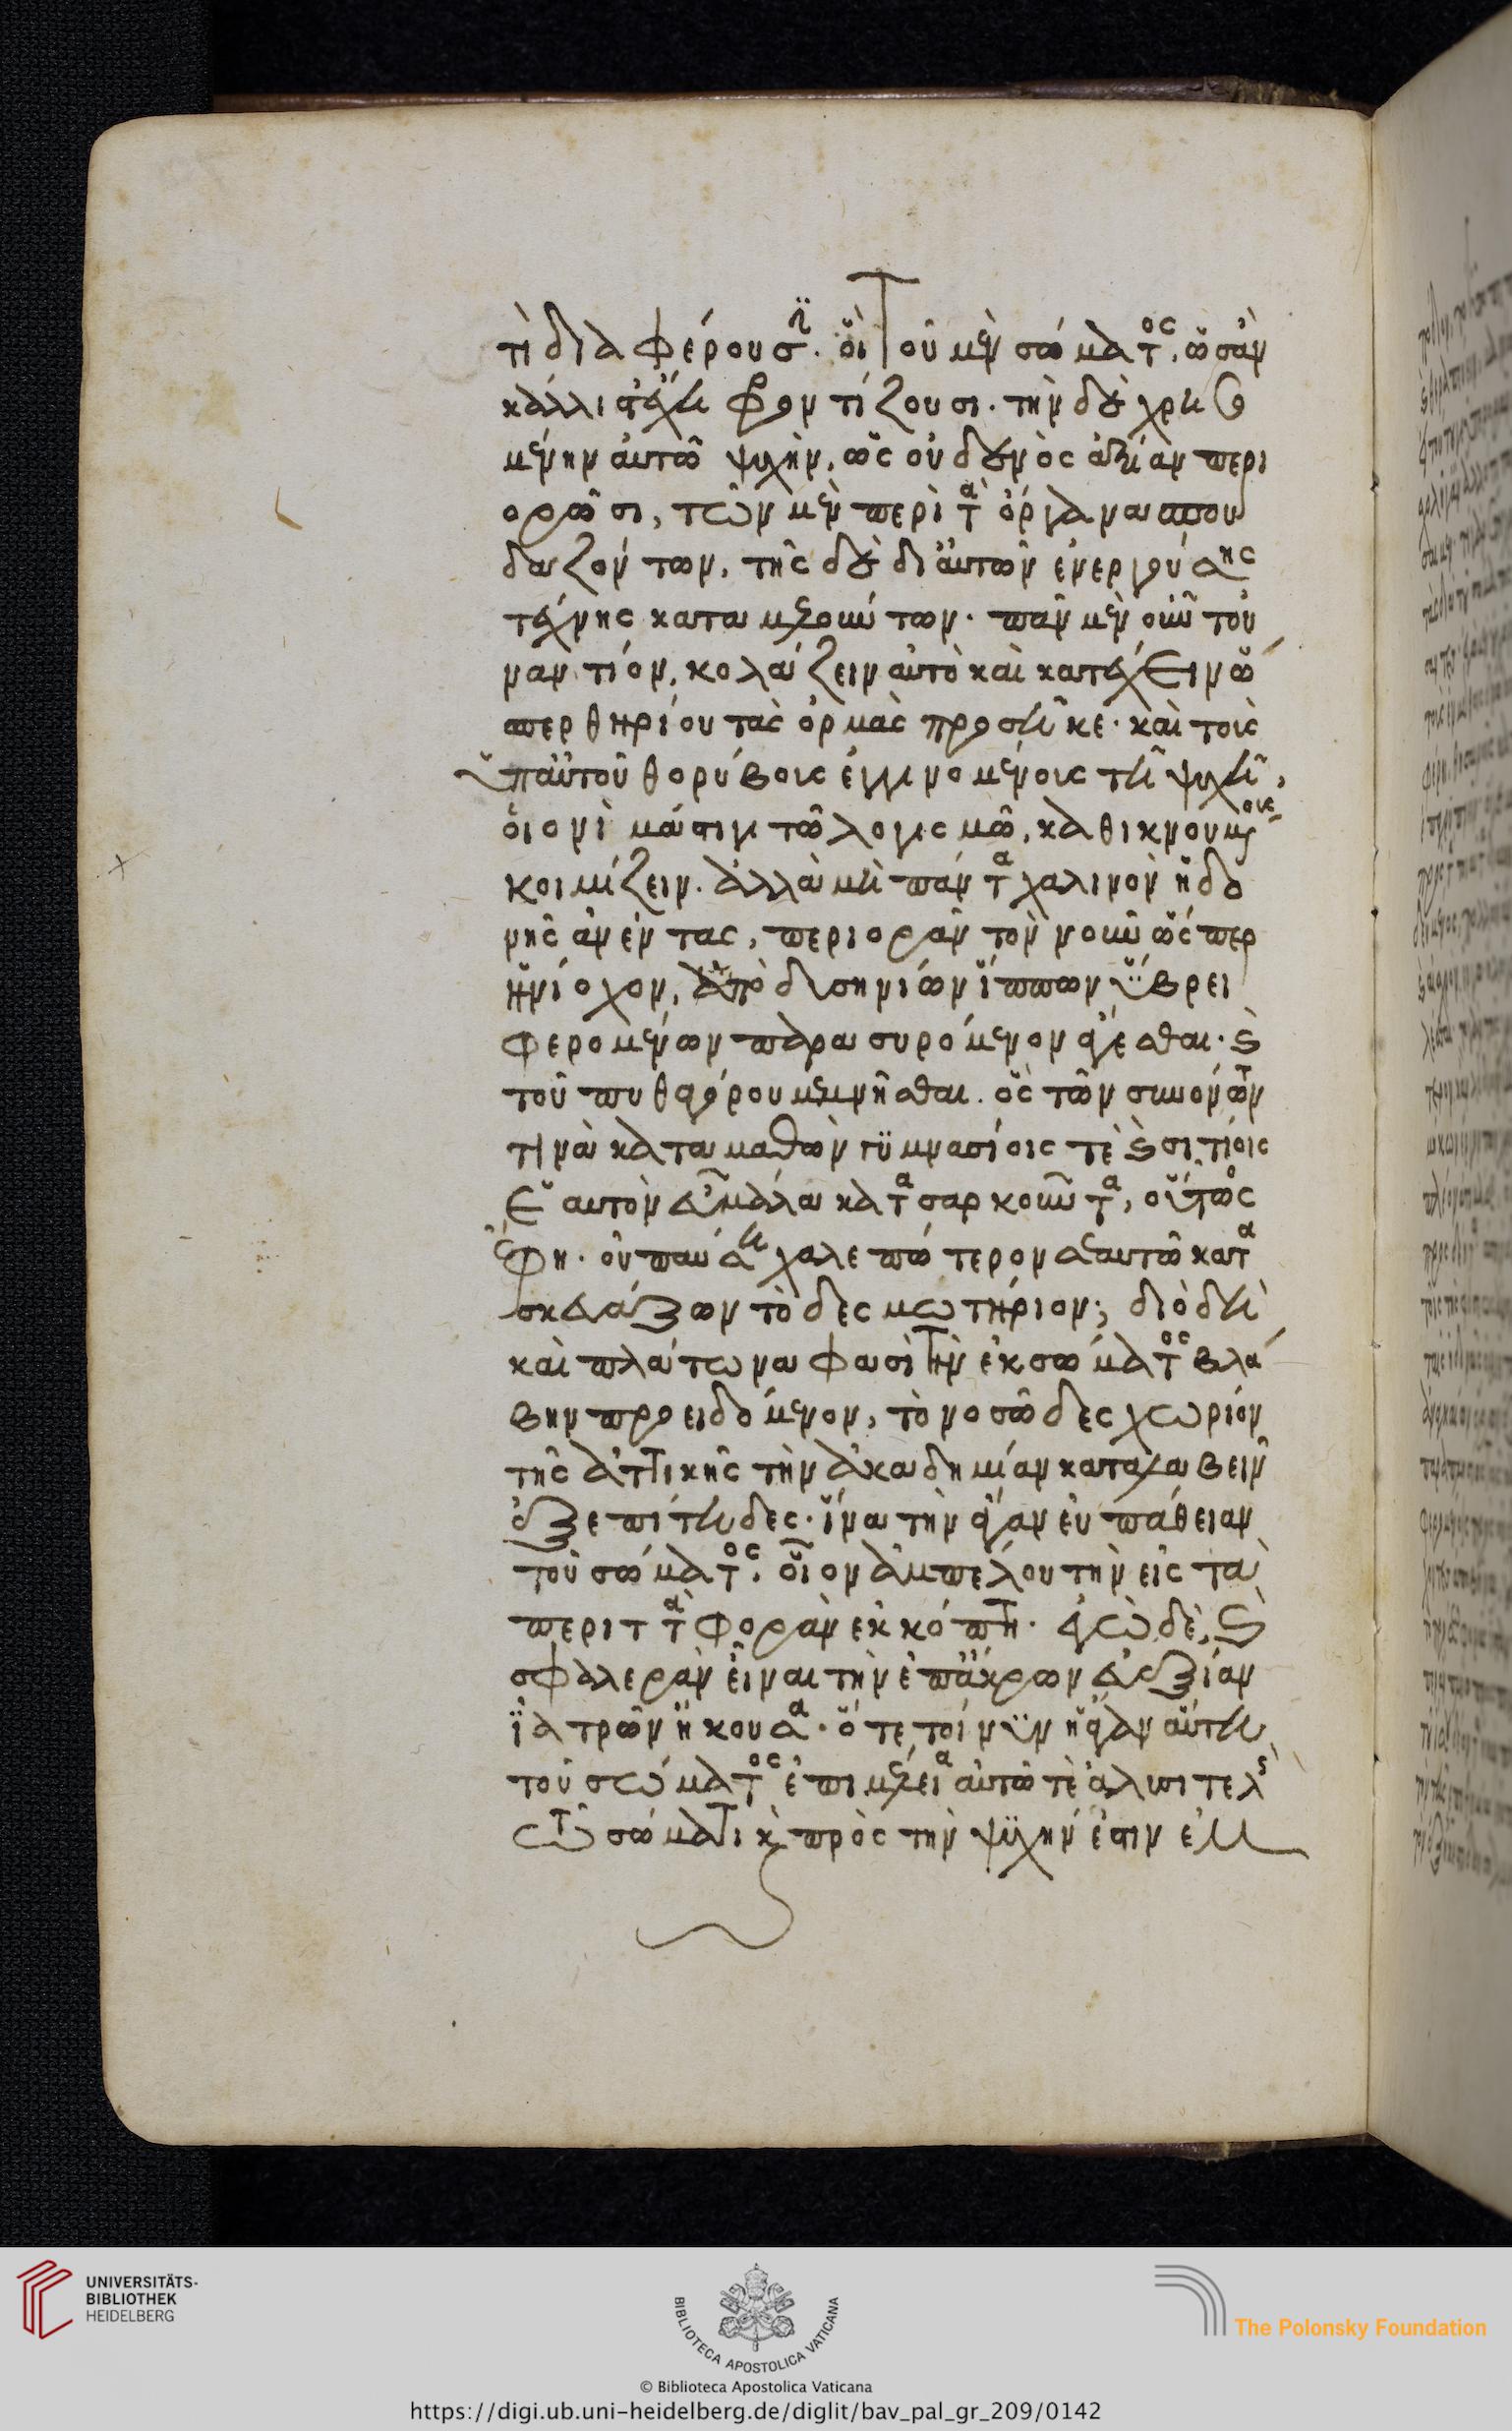 τί διαφέρουσιν. οἳ τοῦ μὲν σώματος, ὡς ἂν
κάλλιστα ἔχῃ φροντίζουσι. τὴν δὲ χρησο
μένην αὐτῶ ψυχὴν, ὡς οὐδενὸς ἀξίαν περι
ορῶσι, τῶν μὲν περὶ τὰ ὄργανα σπου
δαζόντων, τῆς δὲ δι᾽ αὐτῶν ἐνεργούσης
τέχνης καταμελούντων. πᾶν μὲν οὖν τοὐ
ναντίον, κολάζειν αὐτὸ καὶ κατέχειν ὥ
σπερ θηρίου τὰς ὁρμὰς προσῆκε. καὶ τοῖς
ὑπ᾽ αὐτοῦ θορύβοις ἐγγινομένοις τῆ ψυχῆ,
οἱονὶ μάστιγι τῶ λογισμῶ, καθικνουμένους
κοιμίζειν. ἀλλὰ μὴ πάντα χαλινὸν ἡδο
νῆς ἀνέντας, περιορᾶν τὸν νοῦν ὥσπερ
ἡνίοχον, ὑπὸ δυσηνίων ἵππων ὕβρει
φερομένων παρασυρόμενον ἄγεσθαι. καὶ
τοῦ πυθαγόρου μεμνῆσθαι. ὃς τῶν συνόντων
τινὰ καταμαθὼν γυμνασίοις τὲ καὶ σιτίοις
ἑαυτὸν εὖ μάλα κατασαρκοῦντα, οὕτως
ἔφη. οὐ παύσῃ χαλεπώτερον σεαυτῶ κατα
σκευάζων τὸ δεσμωτήριον; διὸ δὴ
καὶ πλάτωνα φασὶ τὴν ἐκ σώματος βλά
βην προειδόμενον, τὸ νοσῶδες χωρίον
τῆς ἀττικῆς τὴν ἀκαδημίαν καταλαβεῖν
ἐξεπίτηδες. ἵνα τὴν ἄγαν εὐπάθειαν
τοῦ σώματος, οἷον ἀμπέλου τὴν εἰς τὰ
περιττὰ φορὰν ἐκκόπτῃ. ἐγὼ δὲ, καὶ
σφαλερὰν εἶναι τὴν ἐπ᾽ ἄκρων εὐεξίαν
ἰατρῶν ἤκουσα. ὅτε τοίνυν ἡ ἄγαν αὕτη
τοῦ σώματος ἐπιμέλεια αὐτῶ τὲ ἀλυσιτελὴς
τῶ σώματι καὶ πρὸς τὴν ψυχήν ἐστιν ἐμ
https://digi.ub.uni-heidelberg.de/diglit/bav_pal_gr_209/0142
UNIVERSITÄTS-
BIBLIOTHEK
HEIDELBERG
BIBLIOTECA APOSTOLICA VATICANA
© Biblioteca Apostolica Vaticana
The Polonsky Foundation